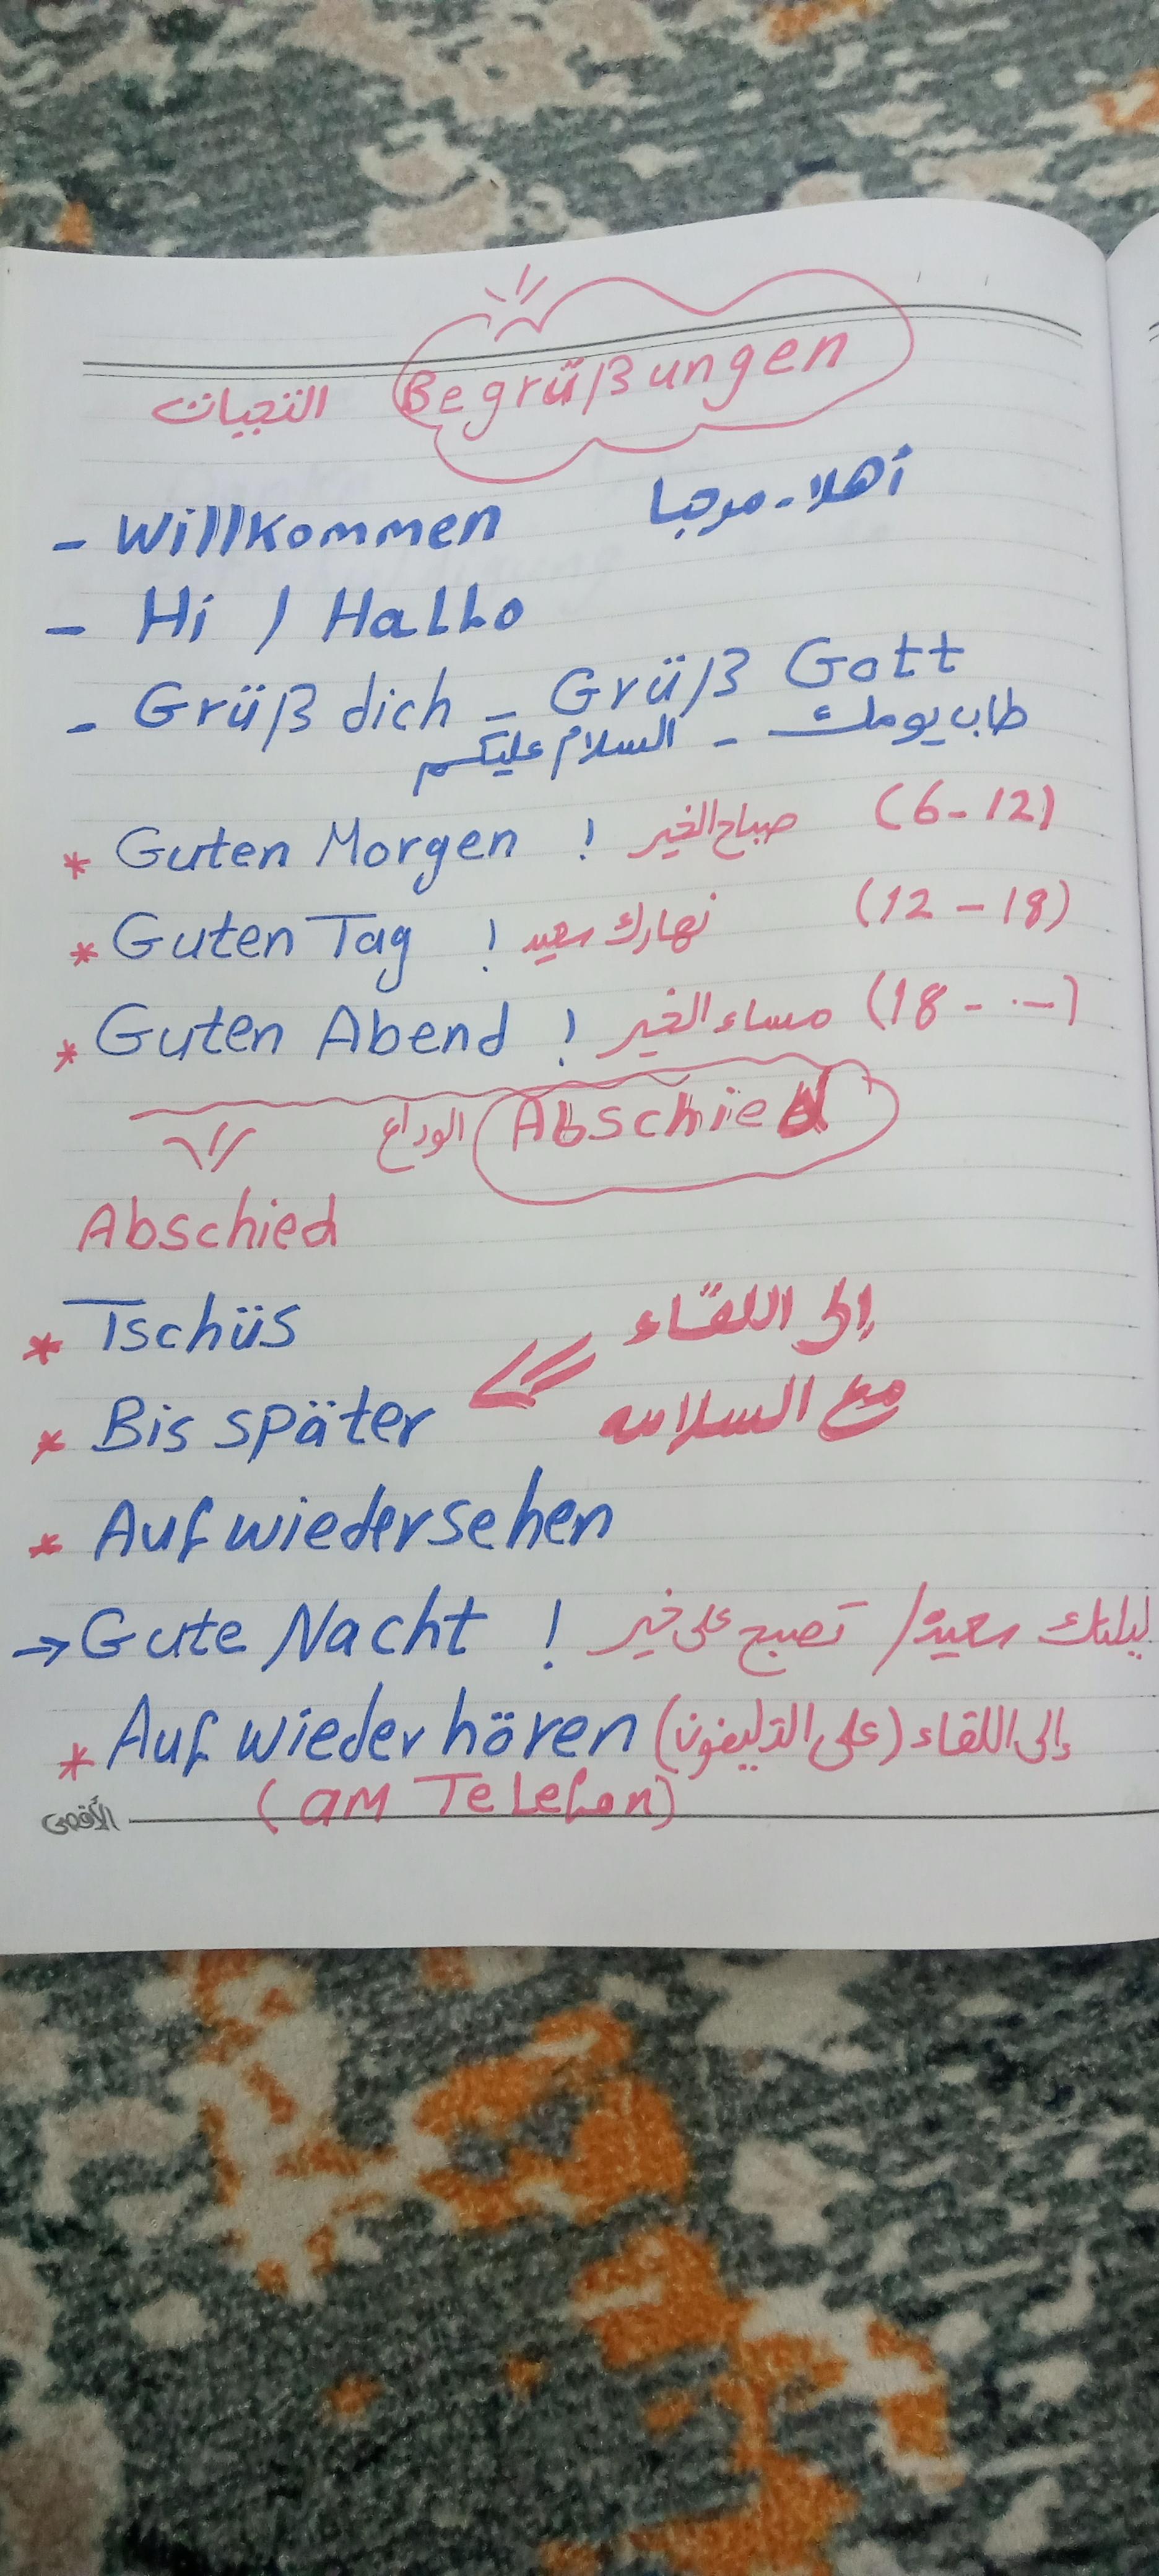 Begrüßungen التحيات
- Willkommen أهلا - مرحبا
- Hi / Hallo
- Grüß dich - Grüß Gott
طاب يومك - السلام عليكم
* Guten Morgen ! صباح الخير (6-12)
* Guten Tag ! نهارك سعيد (12-18)
* Guten Abend ! مساء الخير (18 - -)
Abschied الوداع
Abschied
* Tschüs إلى اللقاء
* Bis später مع السلامه
* Auf wiedersehen
→ Gute Nacht ! ليلتك سعيدة / تصبح على خير
* Auf wieder hören إلى اللقاء (على التليفون)
(am Telefon)
الأقصى